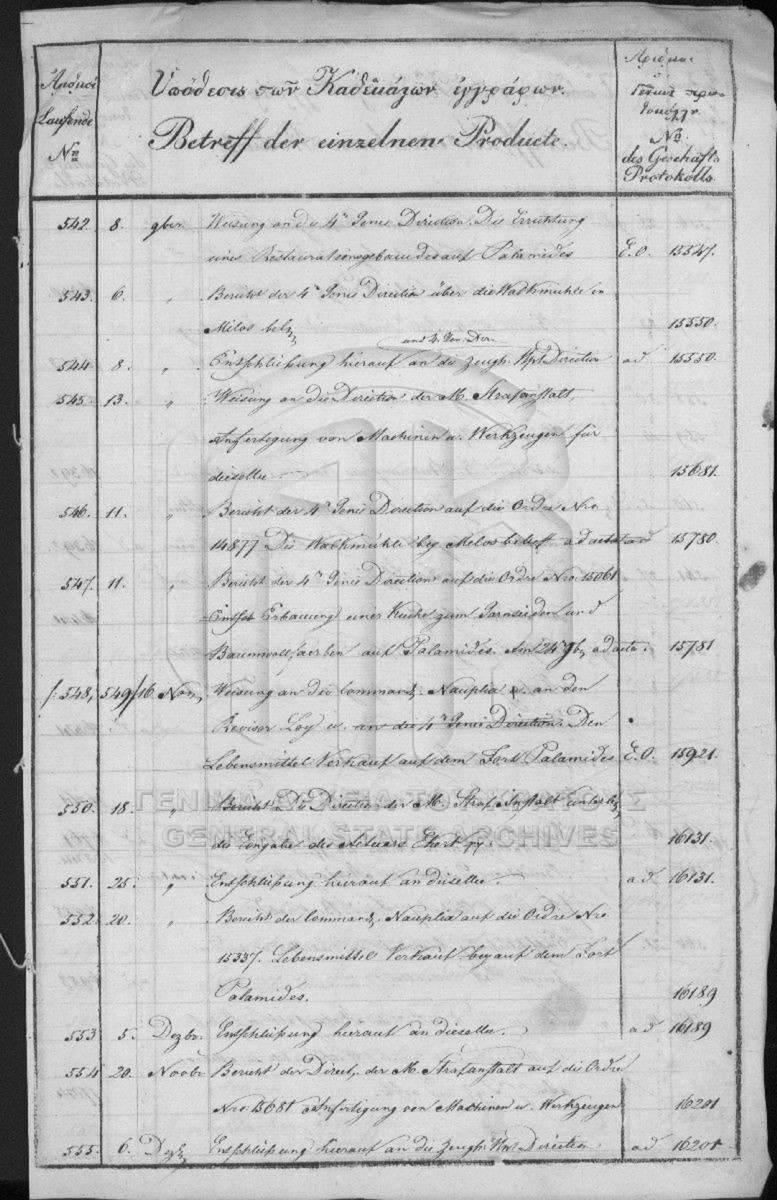 Ἀριθμοὶ
Laufende
No
Ὑπόθεσις τῶν Καθεκάστων ἐγγράφων.
Betreff der einzelnen Producte.
Ἀριθμοι
Γενικοῦ πρω-
τοκόλλου
No.
des Geschäfts
Protokolls.
542. 8. 9ber Weisung an die 4te Genie Direction. Die Errichtung
eines Restaurationsgebaeudes auf Palamides E.O. 15547.
543. 6. " Bericht der 4n Genie Direction über die Walkmühle in
Milos betr. 15550.
und 4. Gen. Dir.
544 8. " Entschließung hierauf an die Zeugh. Hpt Direction ad 15550.
545. 13. " Weisung an die Direction der M. Strafanstalt,
Anfertigung von Maschinen u. Werkzeugen für
dieselbe. 15681.
546. 11. " Bericht der 4n Genie Direction auf die Ordre Nro
14877 Die Walkmühle bey Melos betreff. ad acta ad 15780.
547. 11. " Bericht der 4n Genie Direction auf die Ordre Nro 15061
Erbauung einer Küche zum Garnsieden und
Baumwollfaerben auf Palamides. Am 24 9br ad acta. 15781
/:548, 549/16 Nov. Weisung an die Command. Nauplia u. an den
Revisor Loy u. an die 4n Genie Direction. Den
Lebensmittel Verkauf auf dem Fort Palamides E.O. 15921.
550. 18. " Bericht Die Direction der M. Straf Anstalt
die Eingabe des Actuars 16131.
551. 25. " Entschließung hierauf an dieselbe. ad 16131.
552. 20. " Bericht der Command. Nauplia auf die Ordre Nro
15337. Lebensmittel Verkauf bey auf dem Fort
Palamides. 16189
553 5. Dezbr. Entschließung hierauf an dieselbe. ad 16189
554 20. Novbr Bericht der Direct. der M. Strafanstalt auf die Ordre
Nro 15681 Anfertigung von Maschinen u. Werkzeugen 16201
555. 6. Dezb. Entschließung hierauf an die Zeugh. Hpt Direction ad 16201
ΓΕΝΙΚΑ ΑΡΧΕΙΑ ΤΟΥ ΚΡΑΤΟΥΣ
GENERAL STATE ARCHIVES